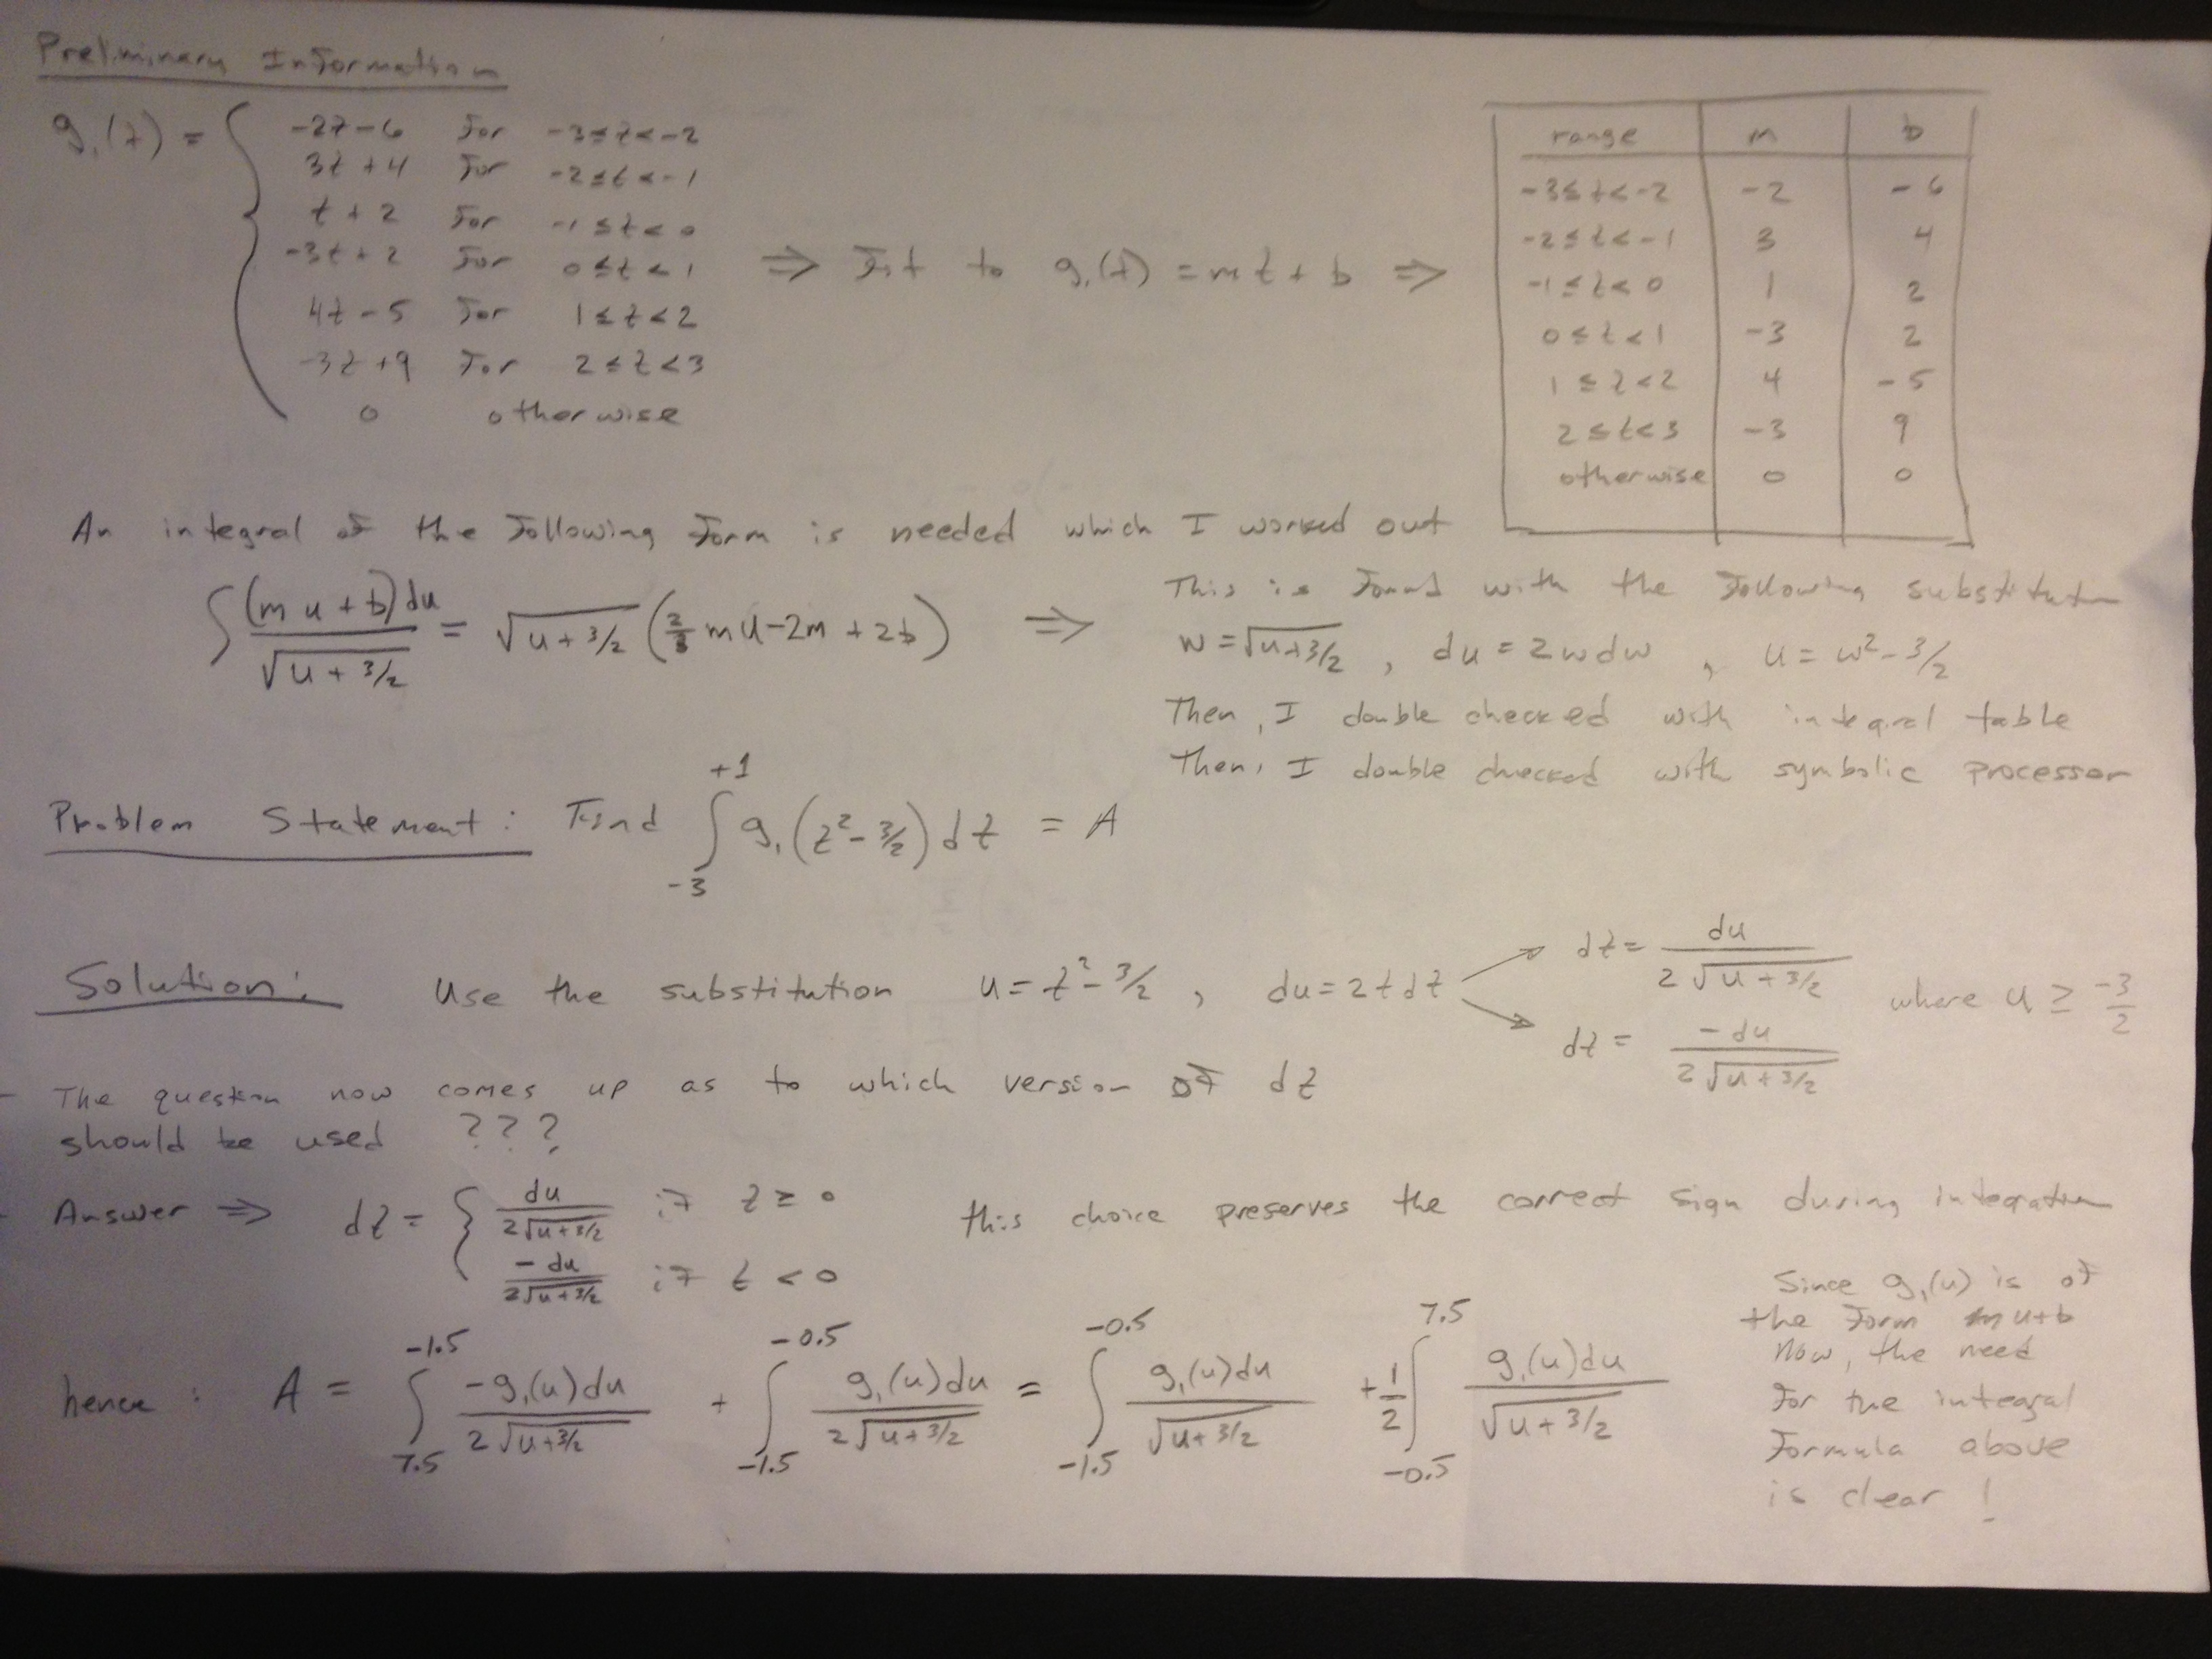 Preliminary Information
g₁(t) = { -2t-6 for -3≤t<-2
3t+4 for -2≤t<-1
t+2 for -1≤t<0
-3t+2 for 0≤t<1
4t-5 for 1≤t<2
-3t+9 for 2≤t<3
0 otherwise
⇒ Fit to g₁(t) = mt+b ⇒
range m b
-3≤t<-2 -2 -6
-2≤t<-1 3 4
-1≤t<0 1 2
0≤t<1 -3 2
1≤t<2 4 -5
2≤t<3 -3 9
otherwise 0 0
An integral of the following form is needed which I worked out
∫ (mu+b)du / √(u+3/2) = √(u+3/2) (2/3 mu-2m+2b) ⇒
This is found with the following substitution
w=√(u+3/2) , du=2wdw , u=w²-3/2
Then, I double checked with integral table
Then, I double checked with symbolic processor
Problem Statement: Find ∫_{-3}^{+1} g₁(t²-3/2)dt = A
Solution: Use the substitution u=t²-3/2 , du=2tdt
dt = du / (2√(u+3/2))
dt = -du / (2√(u+3/2))
where u ≥ -3/2
- The question now comes up as to which version of dt
should be used ???
- Answer ⇒ dt = { du / (2√(u+3/2)) if t≥0
-du / (2√(u+3/2)) if t<0
this choice preserves the correct sign during integration
hence : A = ∫_{7.5}^{-1.5} -g₁(u)du / (2√(u+3/2)) + ∫_{-1.5}^{-0.5} g₁(u)du / (2√(u+3/2)) = ∫_{-1.5}^{-0.5} g₁(u)du / √(u+3/2) + 1/2 ∫_{-0.5}^{7.5} g₁(u)du / √(u+3/2)
Since g₁(u) is of
the form mu+b
Now, the need
for the integral
formula above
is clear !